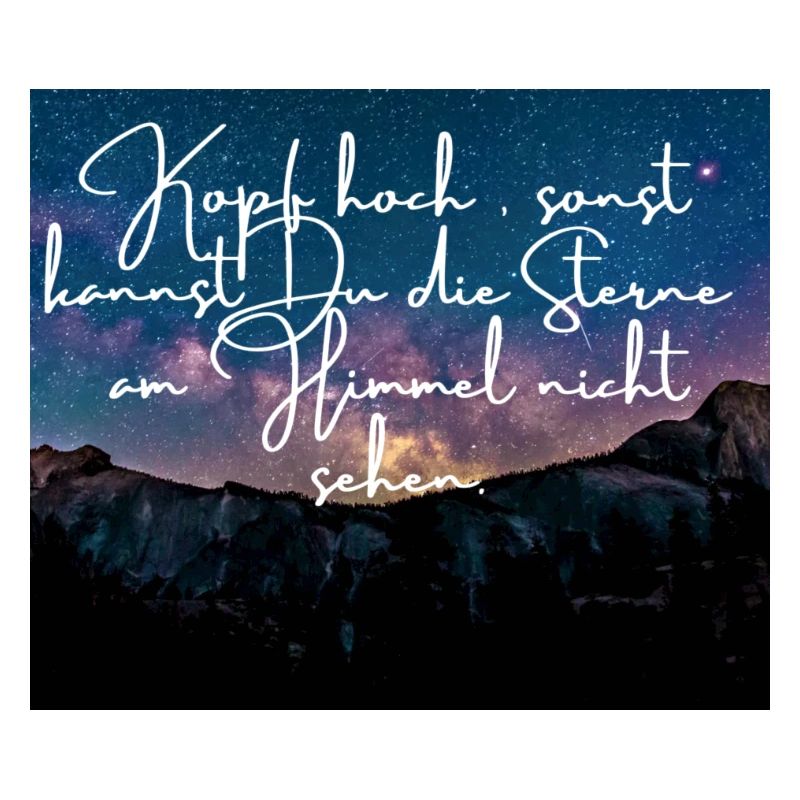 Kopf hoch , sonst
kannst Du die Sterne
am Himmel nicht
sehen.